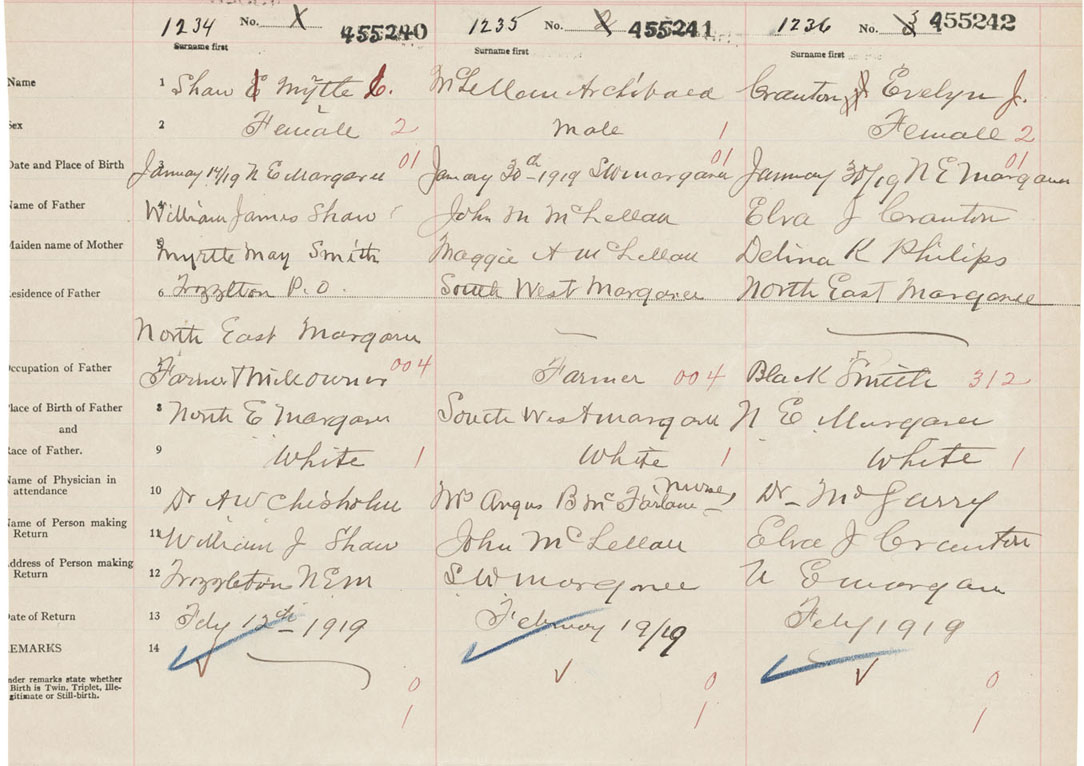 1234 No. X 455240 1235 No. 2 455241 1236 No. 3 455242
Surname first Surname first Surname first
Name 1 Shaw Myrtle C. McLellan Archibald Cranton Evelyn J.
Sex 2 Female 2 Male 1 Female 2
Date and Place of Birth 3 January 14/19 N E Margaree 01 January 30th 1919 S W Margaree 01 January 30/19 N E Margaree 01
Name of Father 4 William James Shaw John M McLellan Elva J Cranton
Maiden name of Mother 5 Myrtle May Smith Maggie A McLellan Delina K Philips
Residence of Father 6 Frizzleton P.O. South West Margaree North East Margaree
North East Margaree
Occupation of Father 7 Farmer & Millowner 004 Farmer 004 Black Smith 312
Place of Birth of Father 8 North E Margaree South West Margaree N E Margaree
and
Race of Father. 9 White 1 White 1 White 1
Name of Physician in
attendance 10 Dr A W Chisholm Mrs Angus B McFarlane nurse Dr McGarry
Name of Person making
Return 11 William J Shaw John McLellan Elva J Cranton
Address of Person making
Return 12 Frizzleton N E M S W Margaree N E Margaree
Date of Return 13 Feby 12th 1919 February 19/19 Feby 1919
REMARKS 14
Under remarks state whether
Birth is Twin, Triplet, Ille-
gitimate or Still-birth.
0 0 0
1 1 1